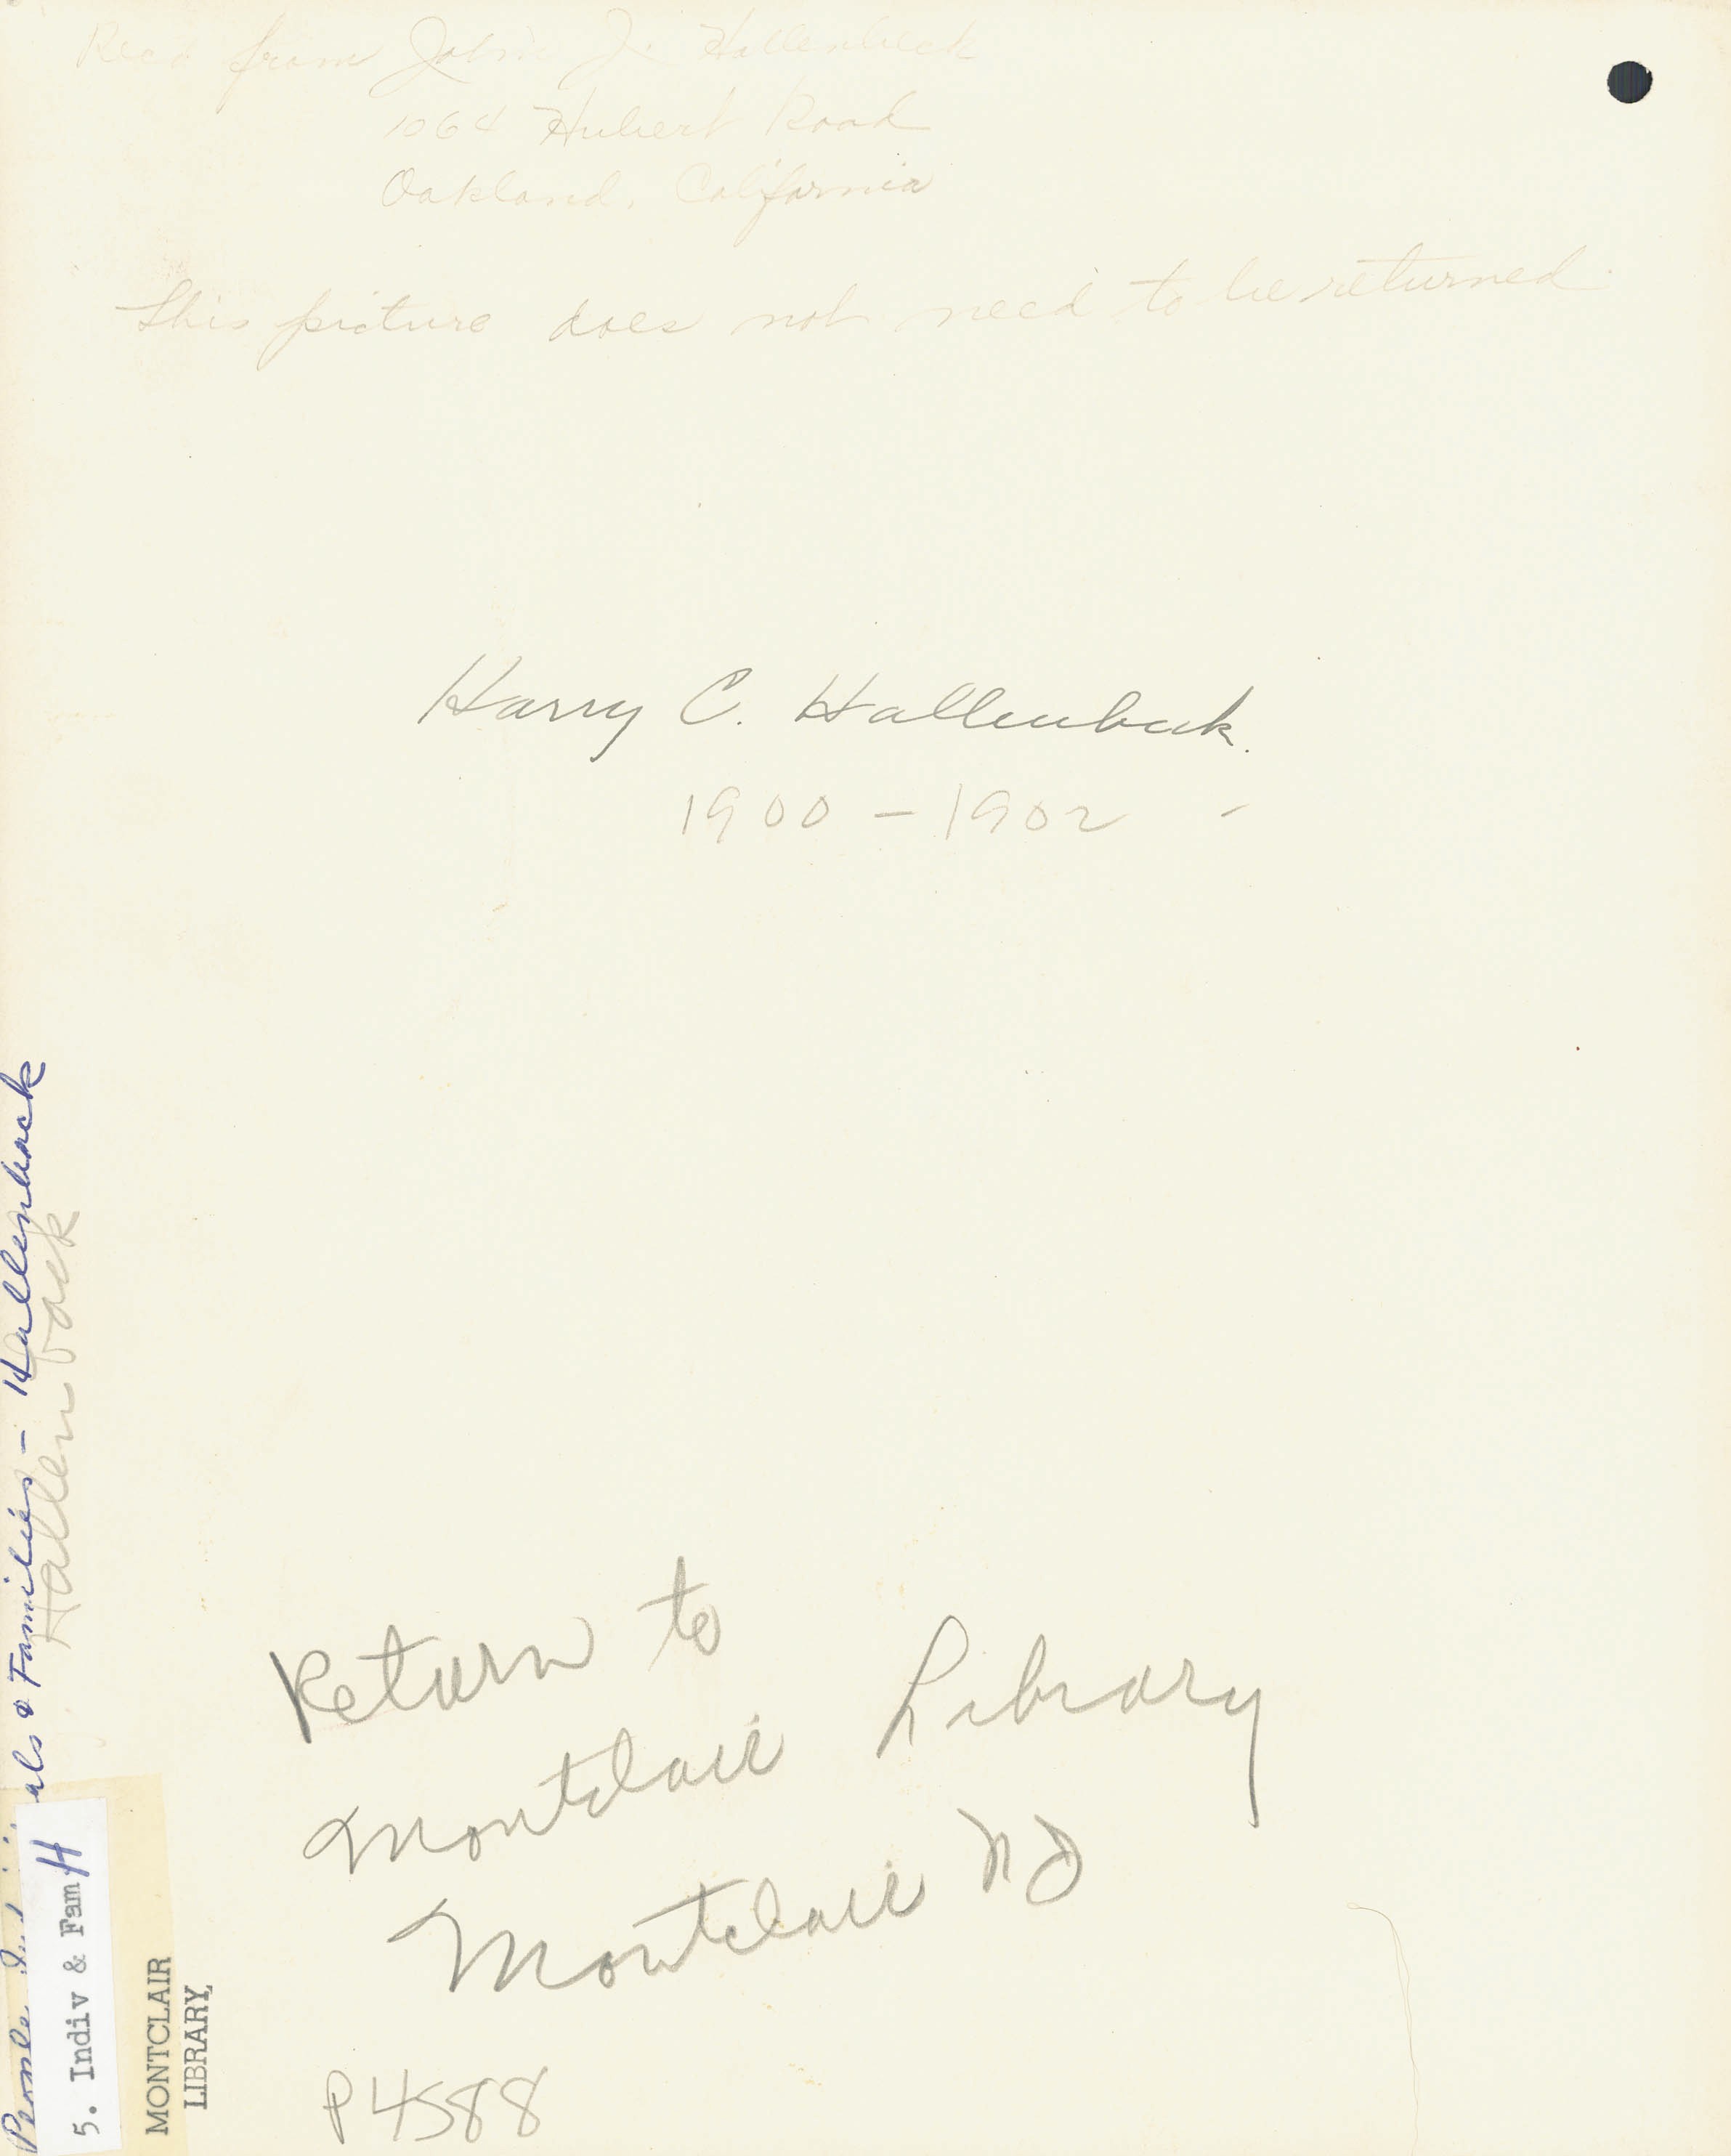 Recd from John J. Hallenbeck
1064 Hubert Road
Oakland, California
This picture does not need to be returned
Harry C. Hallenbeck.
1900 - 1902 -
Return to
Montclair Library
Montclair NJ
P4588
People Indi als & Families - Hallenback
Hallenback
5. Indiv & Fam H
MONTCLAIR
LIBRARY